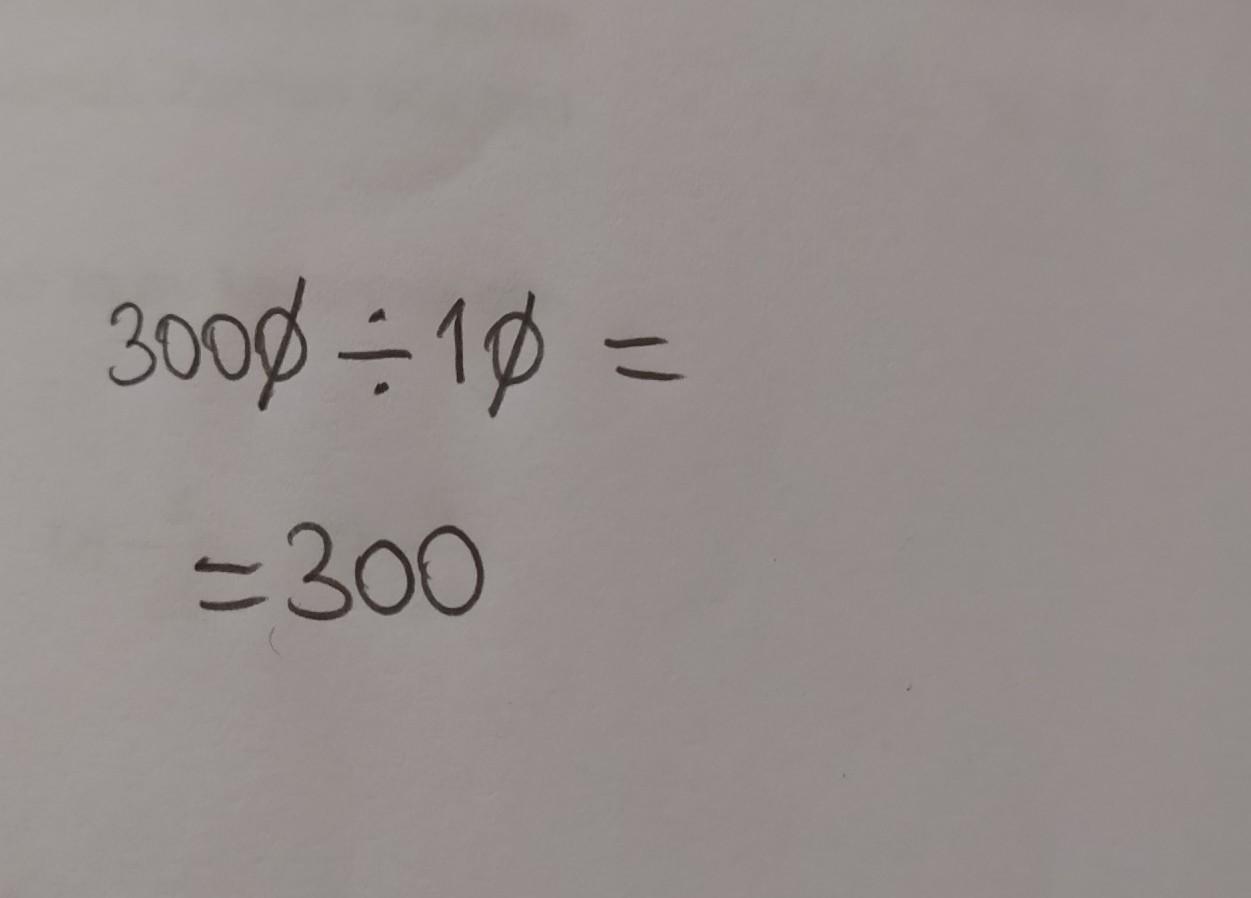 3000 ÷ 10 =
= 300